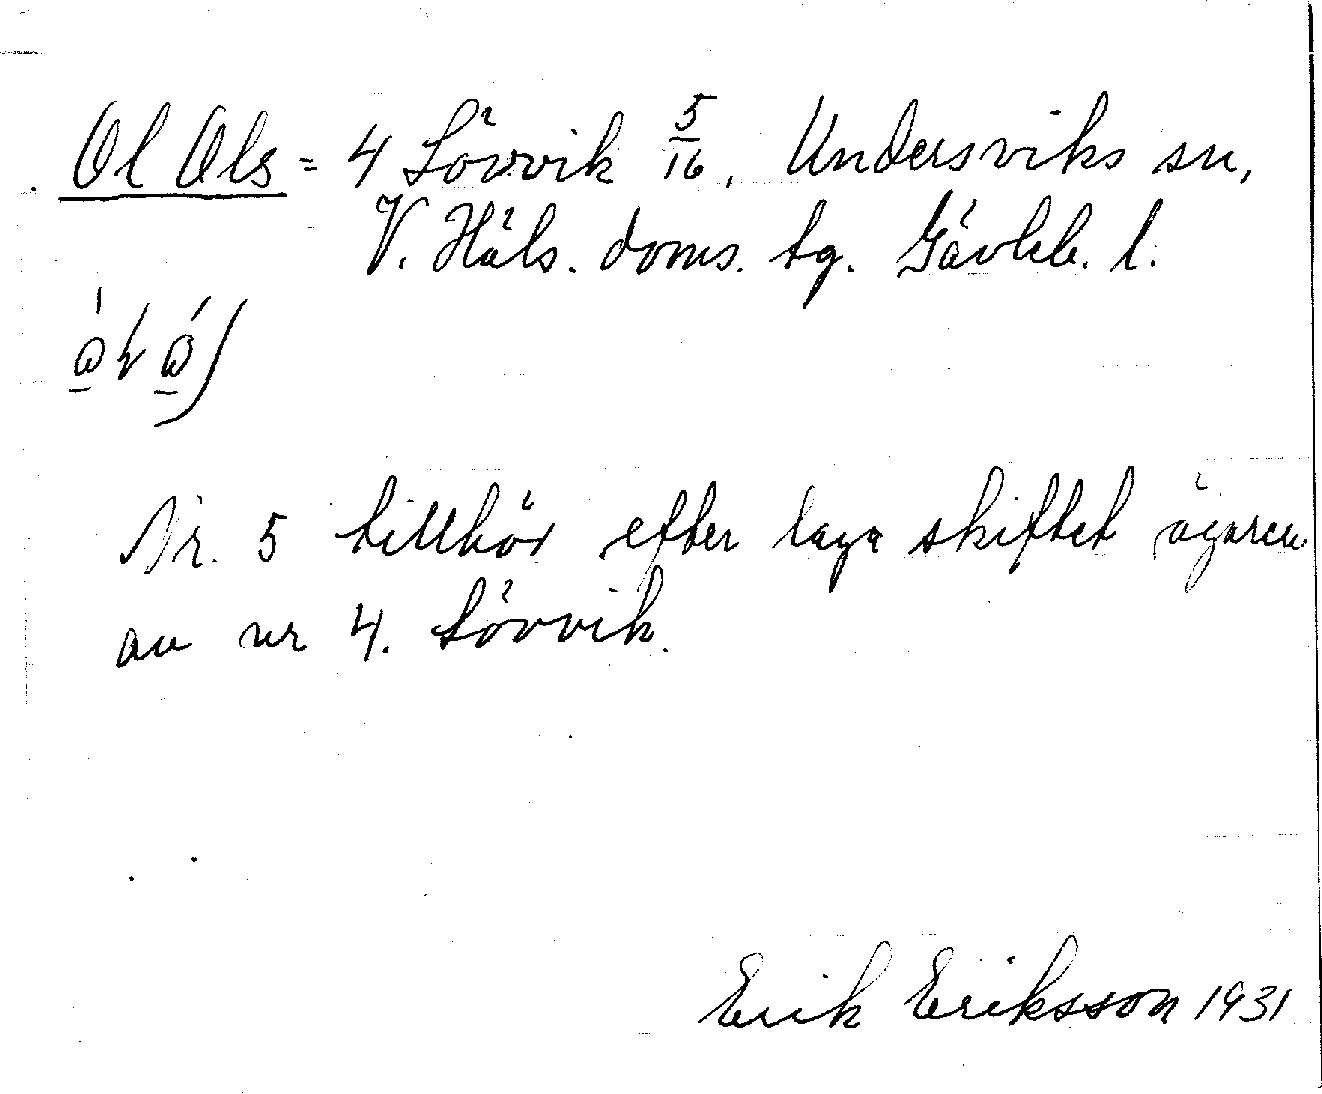 Ol Ols = 4 Lövvik 5/16, Undersviks sn,
V. Häls. doms. tg. Gävleb. l.
Nr. 5 tillhör efter laga skiftet ägaren
av nr 4. Lövvik.
Erik Eriksson 1931